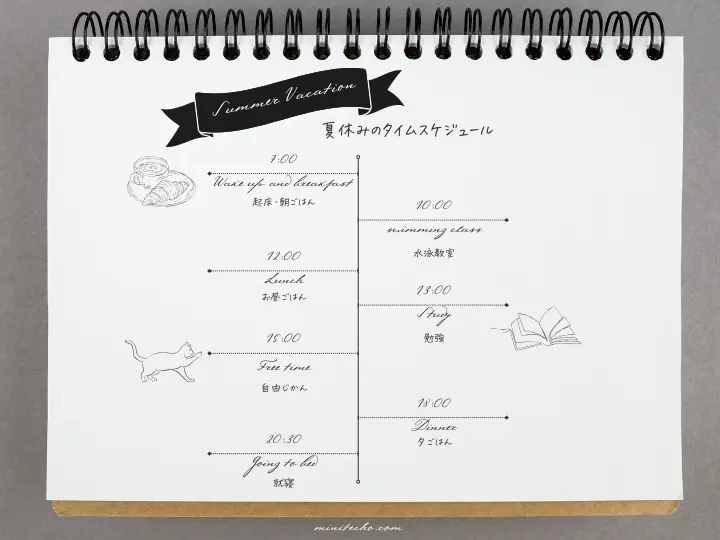 Summer Vacation
夏休みのタイムスケジュール
7:00
Wake up and breakfast
起床・朝ごはん
10:00
swimming class
水泳教室
12:00
Lunch
お昼ごはん
13:00
Study
勉強
15:00
Free time
自由じかん
18:00
Dinner
夕ごはん
20:30
Going to bed
就寝
minitecho.com